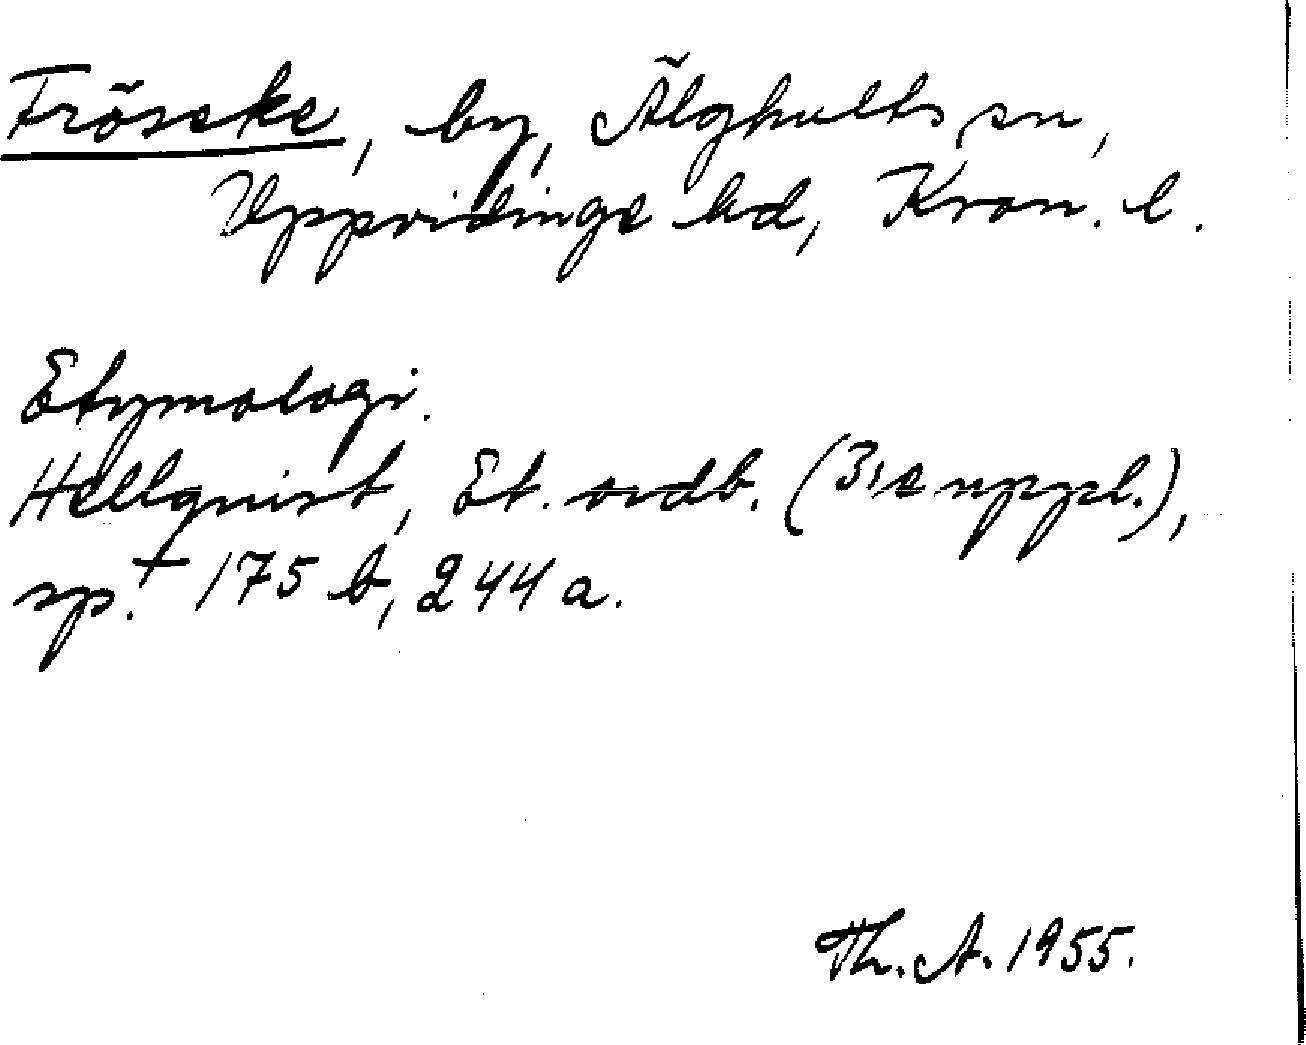 Fröseke, by, Älghults sn,
Uppvidinge hd, Kron. l.
Etymologi.
Hellquist, Et. ordb. (3:e uppl.),
sp. 175 b, 244 a.
Th. A. 1955.